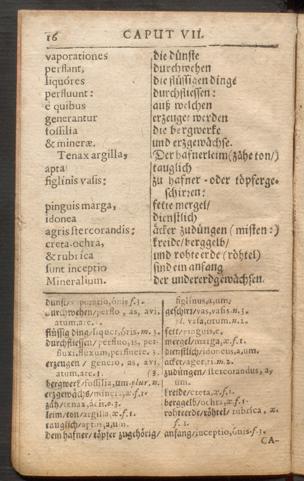 16 CAPUT VII.
vaporationes die dünste
perflant, durchwehen
liquores die flüssigen dinge
perfluunt: durchfliessen:
è quibus auß welchen
generantur erzeuget werden
fossilia die bergwerke
& mineræ. und erzgewächse.
Tenax argilla, Der hafnerleim (zähe ton/)
apta tauglich
figlinis vasis; zu hafner- oder töpferge-
schirren:
pinguis marga, fette mergel/
idonea dienstlich
agris stercorandis; äcker zudüngen (misten:)
creta, ochra, kreide/ berggelb/
& rubrica und rohteerde (röhtel)
sunt inceptio sind ein anfang
Mineralium. der undererdgewächsen.
durchwehen/ perflo, as, avi,
atum, are. 1.
flüssig ding/ liquor, óris, m. 3.
durchfliessen/ perfluo, is, per-
fluxi, fluxum, perfluere. 3.
erzeugen / genero, as, avi,
atum, are. 1.
bergwerk/ fossilia, um. plur. n.
erzgewächs/ minera, æ. f. 1.
zäh/ tenax, ácis. o. 3.
leim/ ton/ argilla, æ. f. 1.
tauglich/ aptus, a, um.
dem hafner/ töpfer zugehörig/
figlinus, a, um.
geschirr/ vas, vasis. n. 3.
fett/ pinguis, e.
mergel/ marga, æ. f. 1.
dienstlich/ idoneus, a, um.
acker/ ager, ri. m. 2.
zudüngen/ stercorandus, a,
um.
kreide/ creta, æ. f. 1.
berggelb/ ochra, æ. f. 1.
rohteerde/ röhtel/ rubrica, æ.
f. 1.
anfang/ inceptio, ónis. f. 3.
CA-